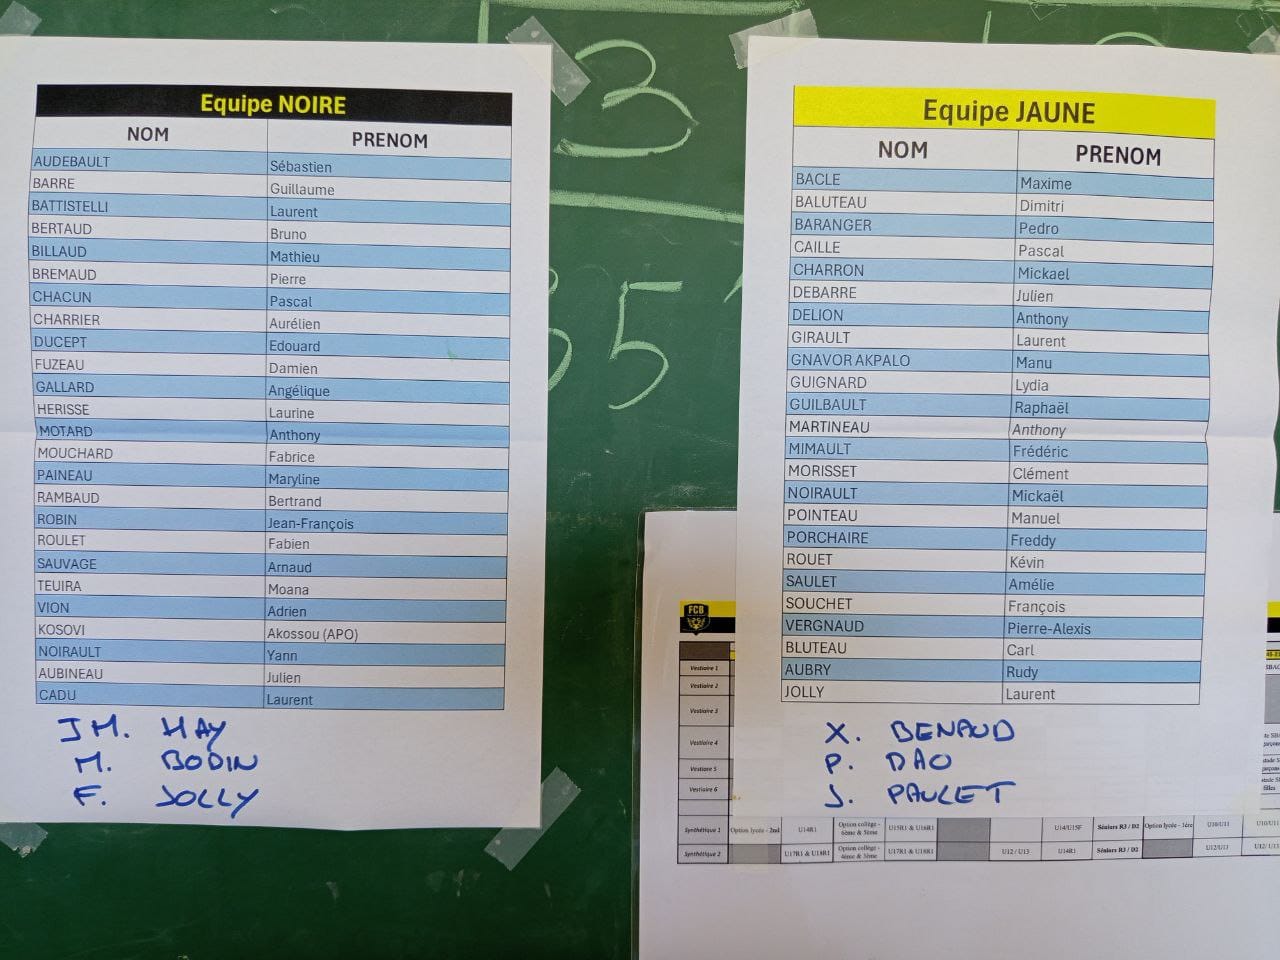 3
5
Equipe NOIRE
NOM PRENOM
AUDEBAULT Sébastien
BARRE Guillaume
BATTISTELLI Laurent
BERTAUD Bruno
BILLAUD Mathieu
BREMAUD Pierre
CHACUN Pascal
CHARRIER Aurélien
DUCEPT Edouard
FUZEAU Damien
GALLARD Angélique
HERISSE Laurine
MOTARD Anthony
MOUCHARD Fabrice
PAINEAU Maryline
RAMBAUD Bertrand
ROBIN Jean-François
ROULET Fabien
SAUVAGE Arnaud
TEUIRA Moana
VION Adrien
KOSOVI Akossou (APO)
NOIRAULT Yann
AUBINEAU Julien
CADU Laurent
JM. HAY
M. BODIN
F. JOLLY
Equipe JAUNE
NOM PRENOM
BACLE Maxime
BALUTEAU Dimitri
BARANGER Pedro
CAILLE Pascal
CHARRON Mickael
DEBARRE Julien
DELION Anthony
GIRAULT Laurent
GNAVOR AKPALO Manu
GUIGNARD Lydia
GUILBAULT Raphaël
MARTINEAU Anthony
MIMAULT Frédéric
MORISSET Clément
NOIRAULT Mickaël
POINTEAU Manuel
PORCHAIRE Freddy
ROUET Kévin
SAULET Amélie
SOUCHET François
VERGNAUD Pierre-Alexis
BLUTEAU Carl
AUBRY Rudy
JOLLY Laurent
X. BENAUD
P. DAO
J. PAULET
FCB
Vestiaire 1
Vestiaire 2
Vestiaire 3
Vestiaire 4
Vestiaire 5
Vestiaire 6
Synthétique 1 Option lycée - 2nd U14R1 Option collège - 6ème & 5ème U15R1 & U16R1 U14/U15F Séniors R3 / D2 Option lycée - 1ère U10/U11 U10/U11
Synthétique 2 U17R1 & U18R1 Option collège - 4ème & 3ème U17R1 & U18R1 U12 / U13 U14R1 Séniors R3 / D2 U12/U13 U12/ U13